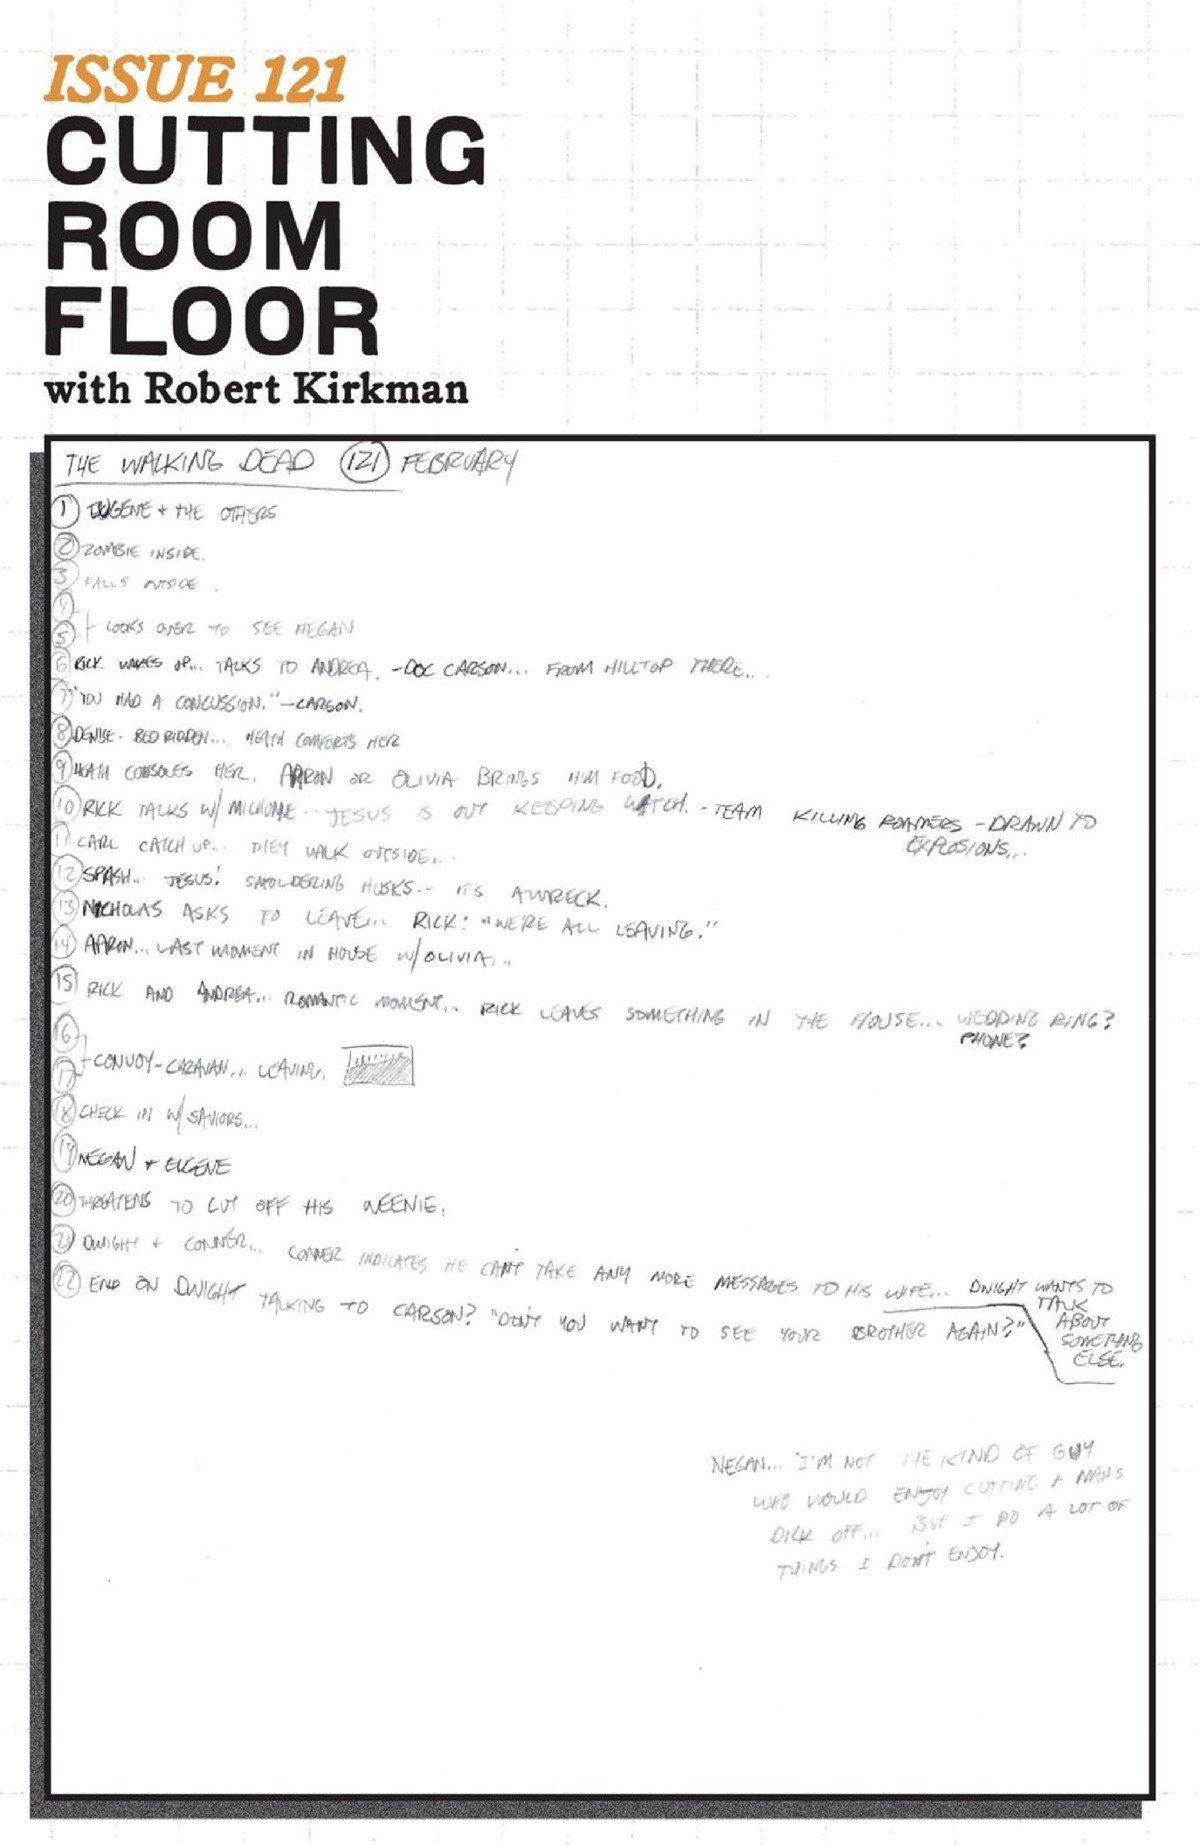 ISSUE 121
CUTTING
ROOM
FLOOR
with Robert Kirkman
THE WALKING DEAD 121 FEBRUARY
1 EUGENE + THE OTHERS
2 ZOMBIE INSIDE.
3 FALLS OUTSIDE.
4
5 LOOKS OVER TO SEE NEGAN
6 RICK WAKES UP... TALKS TO ANDREA. -DOC CARSON... FROM HILLTOP THERE...
7 "YOU HAD A CONCUSSION." -CARSON.
8 DENISE- BED RIDDEN... HEATH COMFORTS HER
9 HEATH CONSOLES HER. AARON OR OLIVIA BRINGS HIM FOOD.
10 RICK TALKS W/ MICHONNE... JESUS IS OUT KEEPING WATCH. -TEAM KILLING ROAMERS - DRAWN TO
EXPLOSIONS...
11 CARL CATCH UP... THEY WALK OUTSIDE...
12 SPASH... JESUS! SMOLDERING HUSKS... IT'S A WRECK.
13 NICHOLAS ASKS TO LEAVE... RICK: "WE'RE ALL LEAVING."
14 AARON... LAST MOMENT IN HOUSE W/ OLIVIA...
15 RICK AND ANDREA... ROMANTIC MOMENT... RICK LEAVES SOMETHING IN THE HOUSE... WEDDING RING?
PHONE?
16
17 CONVOY-CARAVAN... LEAVING.
18 CHECK IN W/ SAVIORS...
19 NEGAN + EUGENE
20 THREATENS TO CUT OFF HIS WEENIE.
21 DWIGHT + CONNER... CONNER INDICATES HE CAN'T TAKE ANY MORE MESSAGES TO HIS WIFE... DWIGHT WANTS TO
TALK
ABOUT
SOMETHING
ELSE.
22 END ON DWIGHT TALKING TO CARSON? "DON'T YOU WANT TO SEE YOUR BROTHER AGAIN?"
NEGAN... "I'M NOT THE KIND OF GUY
WHO WOULD ENJOY CUTTING A MANS
DICK OFF... BUT I DO A LOT OF
THINGS I DON'T ENJOY.